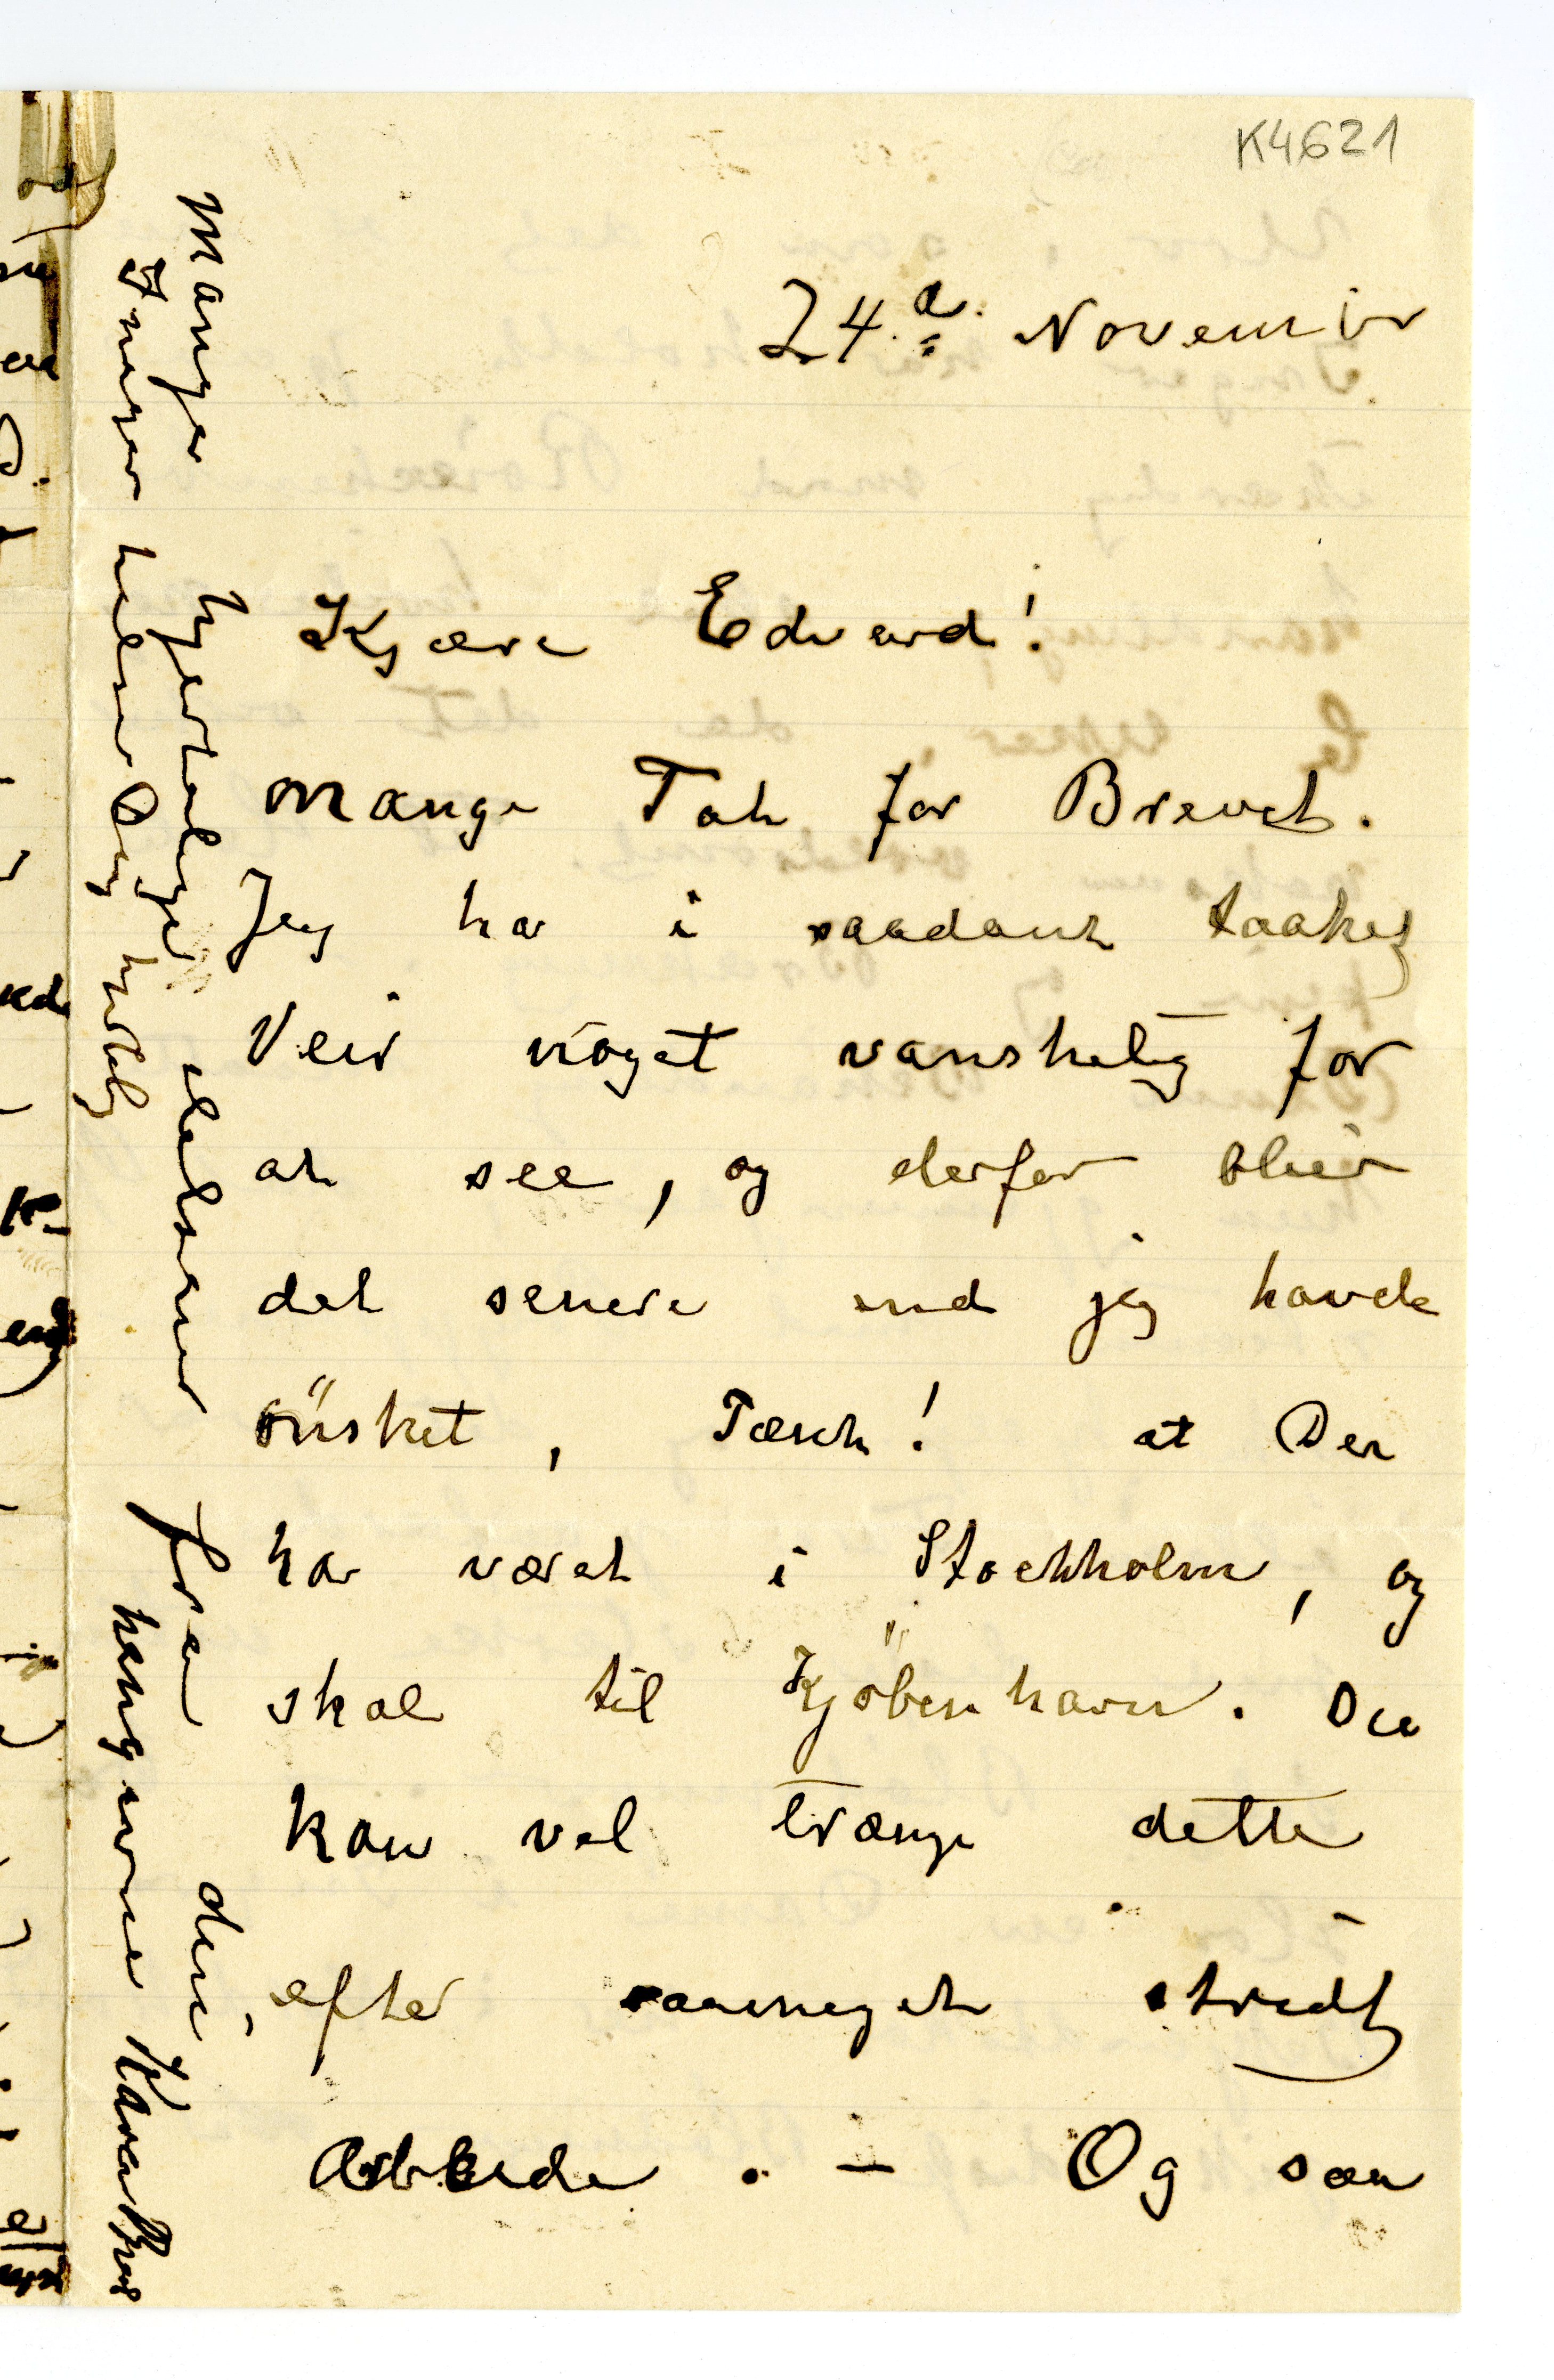 K4621
24.d November
Kjære Edvard!
Mange Tak for Brevet.
Jeg har i saadant taaket
Veir noget vanskelig for
at see, og derfor blier
det senere end jeg havde
önsket, Tænk! at Du
har været i Stockholm, og
skal til Kjöbenhavn. Du
kan vel trænge dette
efter saameget stridt
Arbeide. — Og saa
Mange hjertelige hilsener fra din
Inger hilser Dig hjertelig hengivne Karen